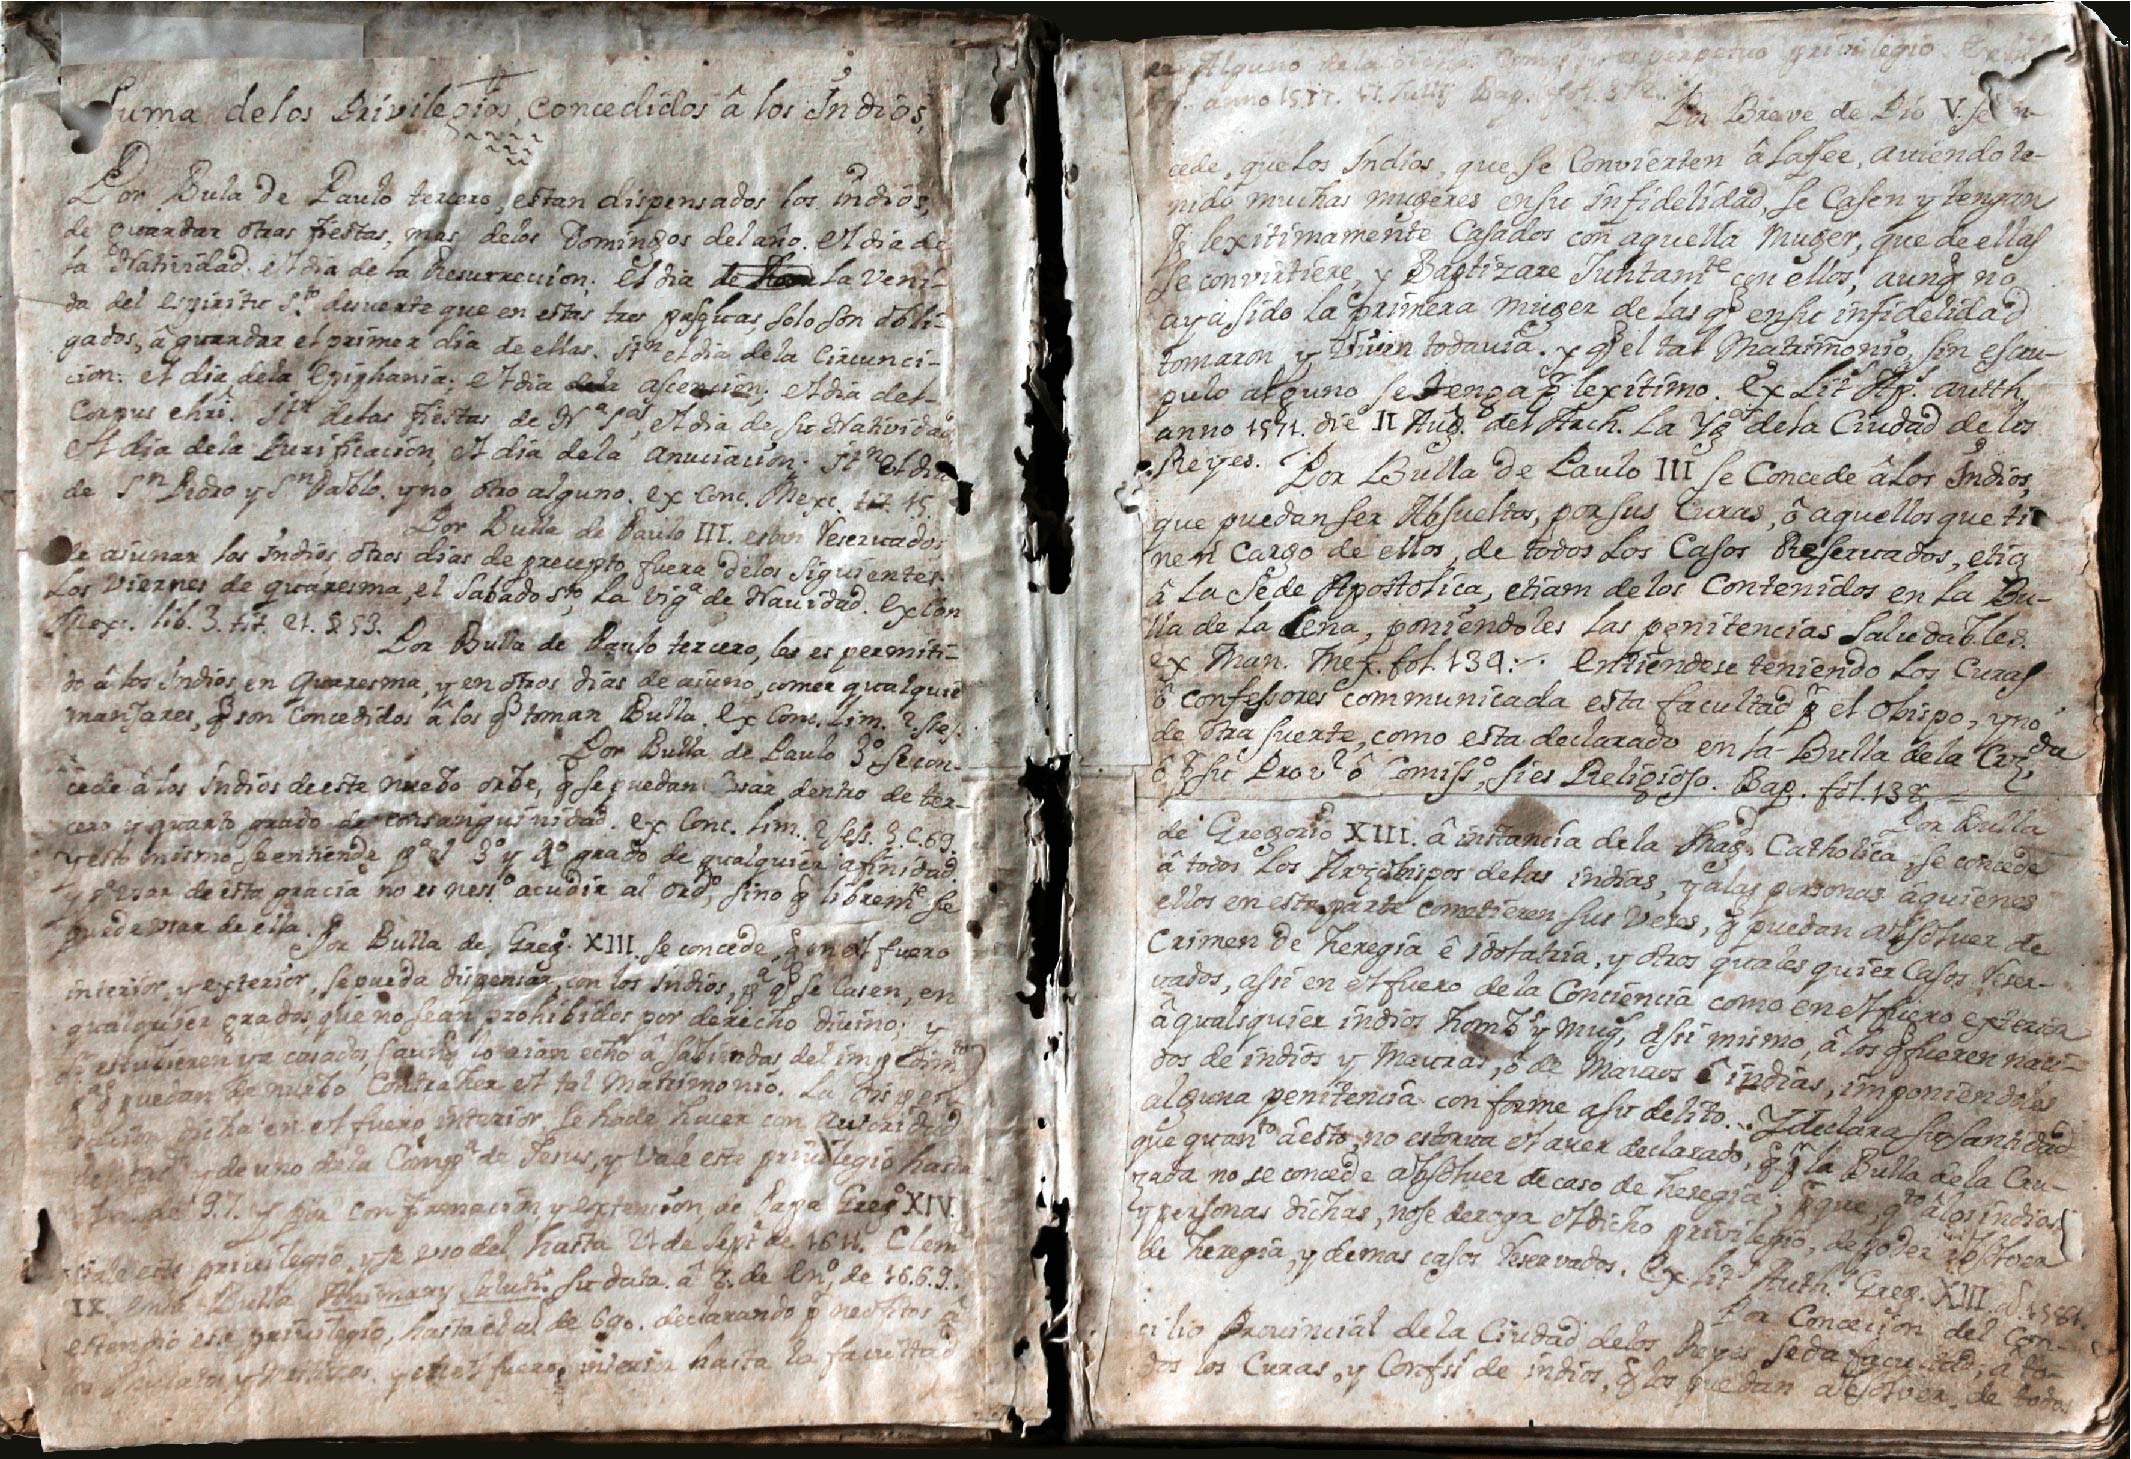 Suma de los Privilegios, concedidos â los Indios,
Por Bula de Paulo tercero, estan dispensados los indios,
de guardar otras fiestas, mas delos Domingos del año. el dia de
la Natividad. el dia de la Resurreccion. el dia la veni-
da del espiritu Sto. desuerte que en estas tres pasquas, solo son obli-
gados, â guardar el primer dia de ellas. Itn. el dia dela Circunci-
cion. el dia dela Epiphania. el dia ascencion. el dia del
Corpus chri. Itn delas fiestas de Na Sas, el dia de su Natividad
el dia dela Purificacion, el dia dela anuciacion. Itn el dia
de Sn Pedro y Sn Pablo. y no otro alguno. ex Conc. Mexc. tit. 15.
Por Bulla de Paulo III. estan Reservados
de aiunar los indios otros dias de precepto, fuera delos siguientes
Los Viernes de quaresma, el Sabado Sto, la viga de Navidad. ex Con
Mexc. lib. 3. tit. 21. § 53.
Por Bulla de Paulo tercero, les es permiti-
do â los Indios en quaresma, y en otros dias de aiuno, comer qualquie
manjares, q son concedidos â los q toman Bulla. ex Conc. Lim. 2 Ses.
Por Bulla de Paulo 3o. se con-
cede â los Indios deeste nuebo orbe, q se puedan casar dentro de ter-
cero y quarto grado de consanguinidad. ex Conc. Lim. 2 Sess. 3. C. 69.
y esto mismo se entiende pa el 3o y 4o grado de qualquier afinidad.
y pa usar de esta gracia no es nesso. acudir al ordo, sino q libremte se
puede usar de ella.
Por Bulla de Grego. XIII. se concede, q en el fuero
interior, y exterior, se pueda dispensar, con los indios, pa q se Casen, en
qualquier grados que no sean prohibidos por derecho divino; y
si estubieren ya casados, (aunq lo aian echo â sabiendas del impedimto)
pa q puedan de nuebo Contraher el tal Matrimonio. La dispen-
sacion dicha en el fuero interior, se ha de hacer con autoridad
y de uno dela Compa de Jesus, y vale este privilegio hasta
de 97. y por confirmacion, y extencion, de Papa Grego XIV.
vale este privilegio, y se uso del, hasta 21 de Sept de 1611. Cleme
IX. en la Bulla Animarum Saluti. su data. â 2. de Eno, de 1669.
estendio este privilegio, hasta el al de 690. declarando pr neofitos â
los Mulatos y Mestizos. y en el fuero, interior hasta la facultad
Alguno de la perpetuo privilegio
anno 1571.
Por Breve de Pio V. se con-
cede, que los Indios, que se Convierten â la fee, aviendo te-
nido muchas mugeres en su infidelidad, se Casen y tengan
pr lexitimamente Casados con aquella Muger, que de ellas
se convirtiere, y Baptizare Juntamte con ellos, aunq no
aya sido la primera muger de las q en su infidelidad
tomaron y viven todavia. y q el tal Matrimonio, sin escru-
pulo alguno se tenga pr lexitimo. ex Lit. Ap. autth.
anno 1571. die II Aug. del Arch. La Yga dela Ciudad de los
Reyes.
Por Bulla de Paulo III se Concede â Los Indios,
que puedan ser Absueltos, por sus Curas, ô aquellos que tie
nen Cargo de ellos, de todos Los Casos Reservados, etia
â La Sede Apostolica, etiam de los Contenidos en la Bu-
lla de la Cena, poniendoles las penitencias saludables.
ex Man. Mex. fol. 134. entiendese teniendo los Curas
ô confessores communicada esta facultad pr el obispo, y no
de otra suerte, como esta declarado en la Bulla de la Cruzda
ô pr su Provl ô Comisso, si es Religioso. Bap. fol. 138.
Por Bulla
de Gregorio XIII. â instancia de la Magd. Catholica, se concede
â todos Los Arzobispos delas indias, y alas personas âquienes
ellos en esta parte cometieren sus veces, q puedan absolver de
Crimen de heregia ê idolatria, y otros quales quier Casos reser-
vados, assi en el fuero de la Conciencia como en el fuero exterior
â qualesquier indios hombs y mugs, assi mismo, â los q fueren naci-
dos de indios y Meuras, ô de Mauros ê indias, imponiendoles
alguna penitencia conforme asu delito. Y declara su santidad
que quanto â esto, no estorva el aver declarado, q pr la Bulla de la Cru-
zada no se concede absolver de caso de heregia; pr que, qto â los indios
y personas dichas, no se deroga el dicho privilegio, de poder absolver
de heregia, y demas casos reservados. ex lit. Auth. Greg. XIII. ad. 1581.
Por Concecion del Con-
cilio Provincial de la Ciudad delos Reyes se da facultad, â to-
dos los Curas, y Confss de indios, q los puedan absolver, de todos